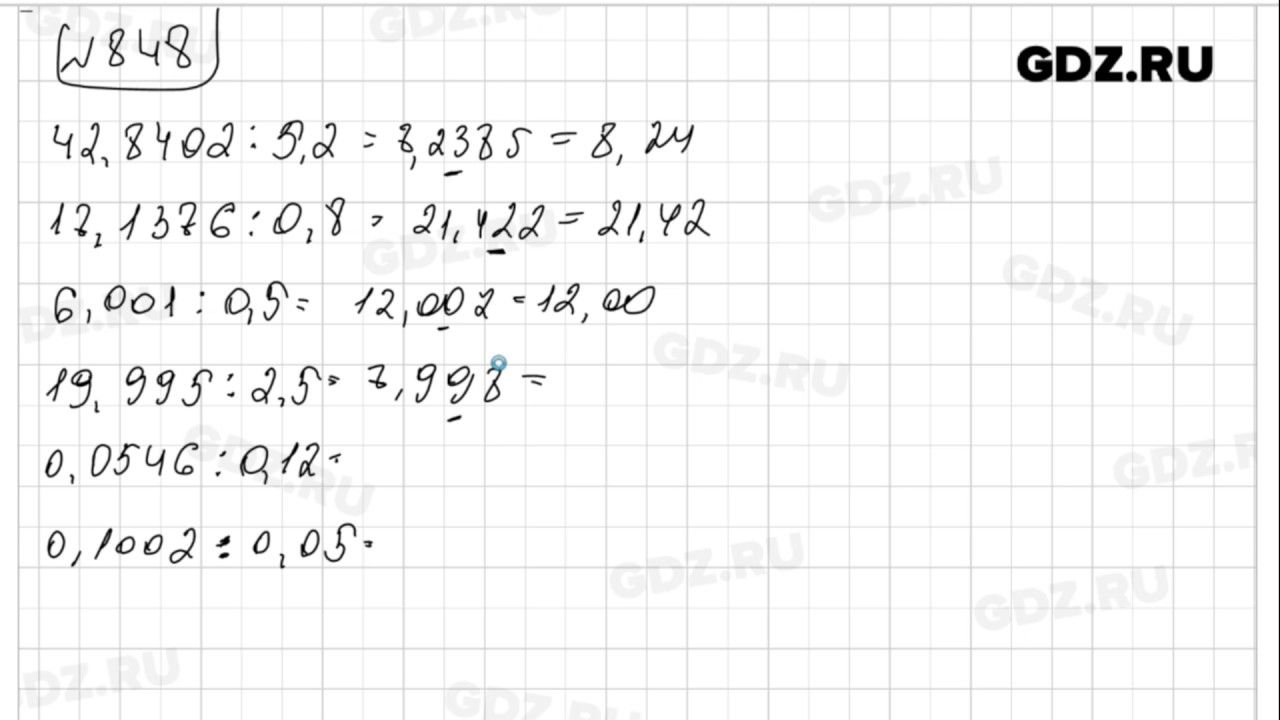 №848
GDZ.RU
42,8402 : 5,2 = 8,2385 = 8,24
17,1376 : 0,8 = 21,422 = 21,42
6,001 : 0,5 = 12,002 = 12,00
19,995 : 2,5 = 7,998 =
0,0546 : 0,12 =
0,1002 : 0,05 =